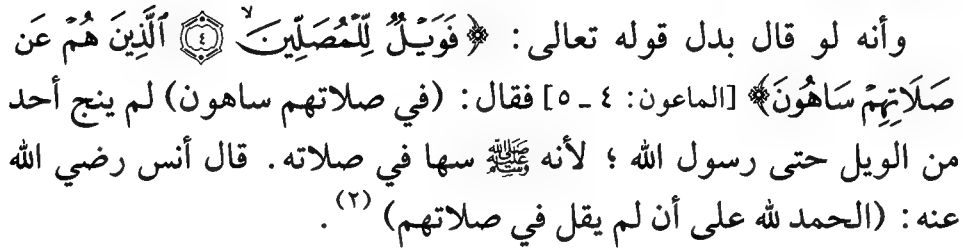 وأنه لو قال بدل قوله تعالى: ﴿فَوَيْلٌ لِّلْمُصَلِّينَ ۙ ٤ ٱلَّذِينَ هُمْ عَن
صَلَاتِهِمْ سَاهُونَ﴾ [الماعون: ٤ ـ ٥] فقال: (في صلاتهم ساهون) لم ينج أحد
من الويل حتى رسول الله ؛ لأنه ﷺ سها في صلاته. قال أنس رضي الله
عنه: (الحمد لله على أن لم يقل في صلاتهم) (٢) .